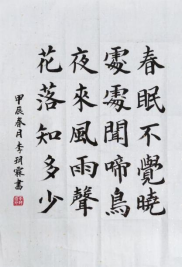 春眠不覺曉
處處聞啼鳥
夜來風雨聲
花落知多少
甲辰春月李玥霖書